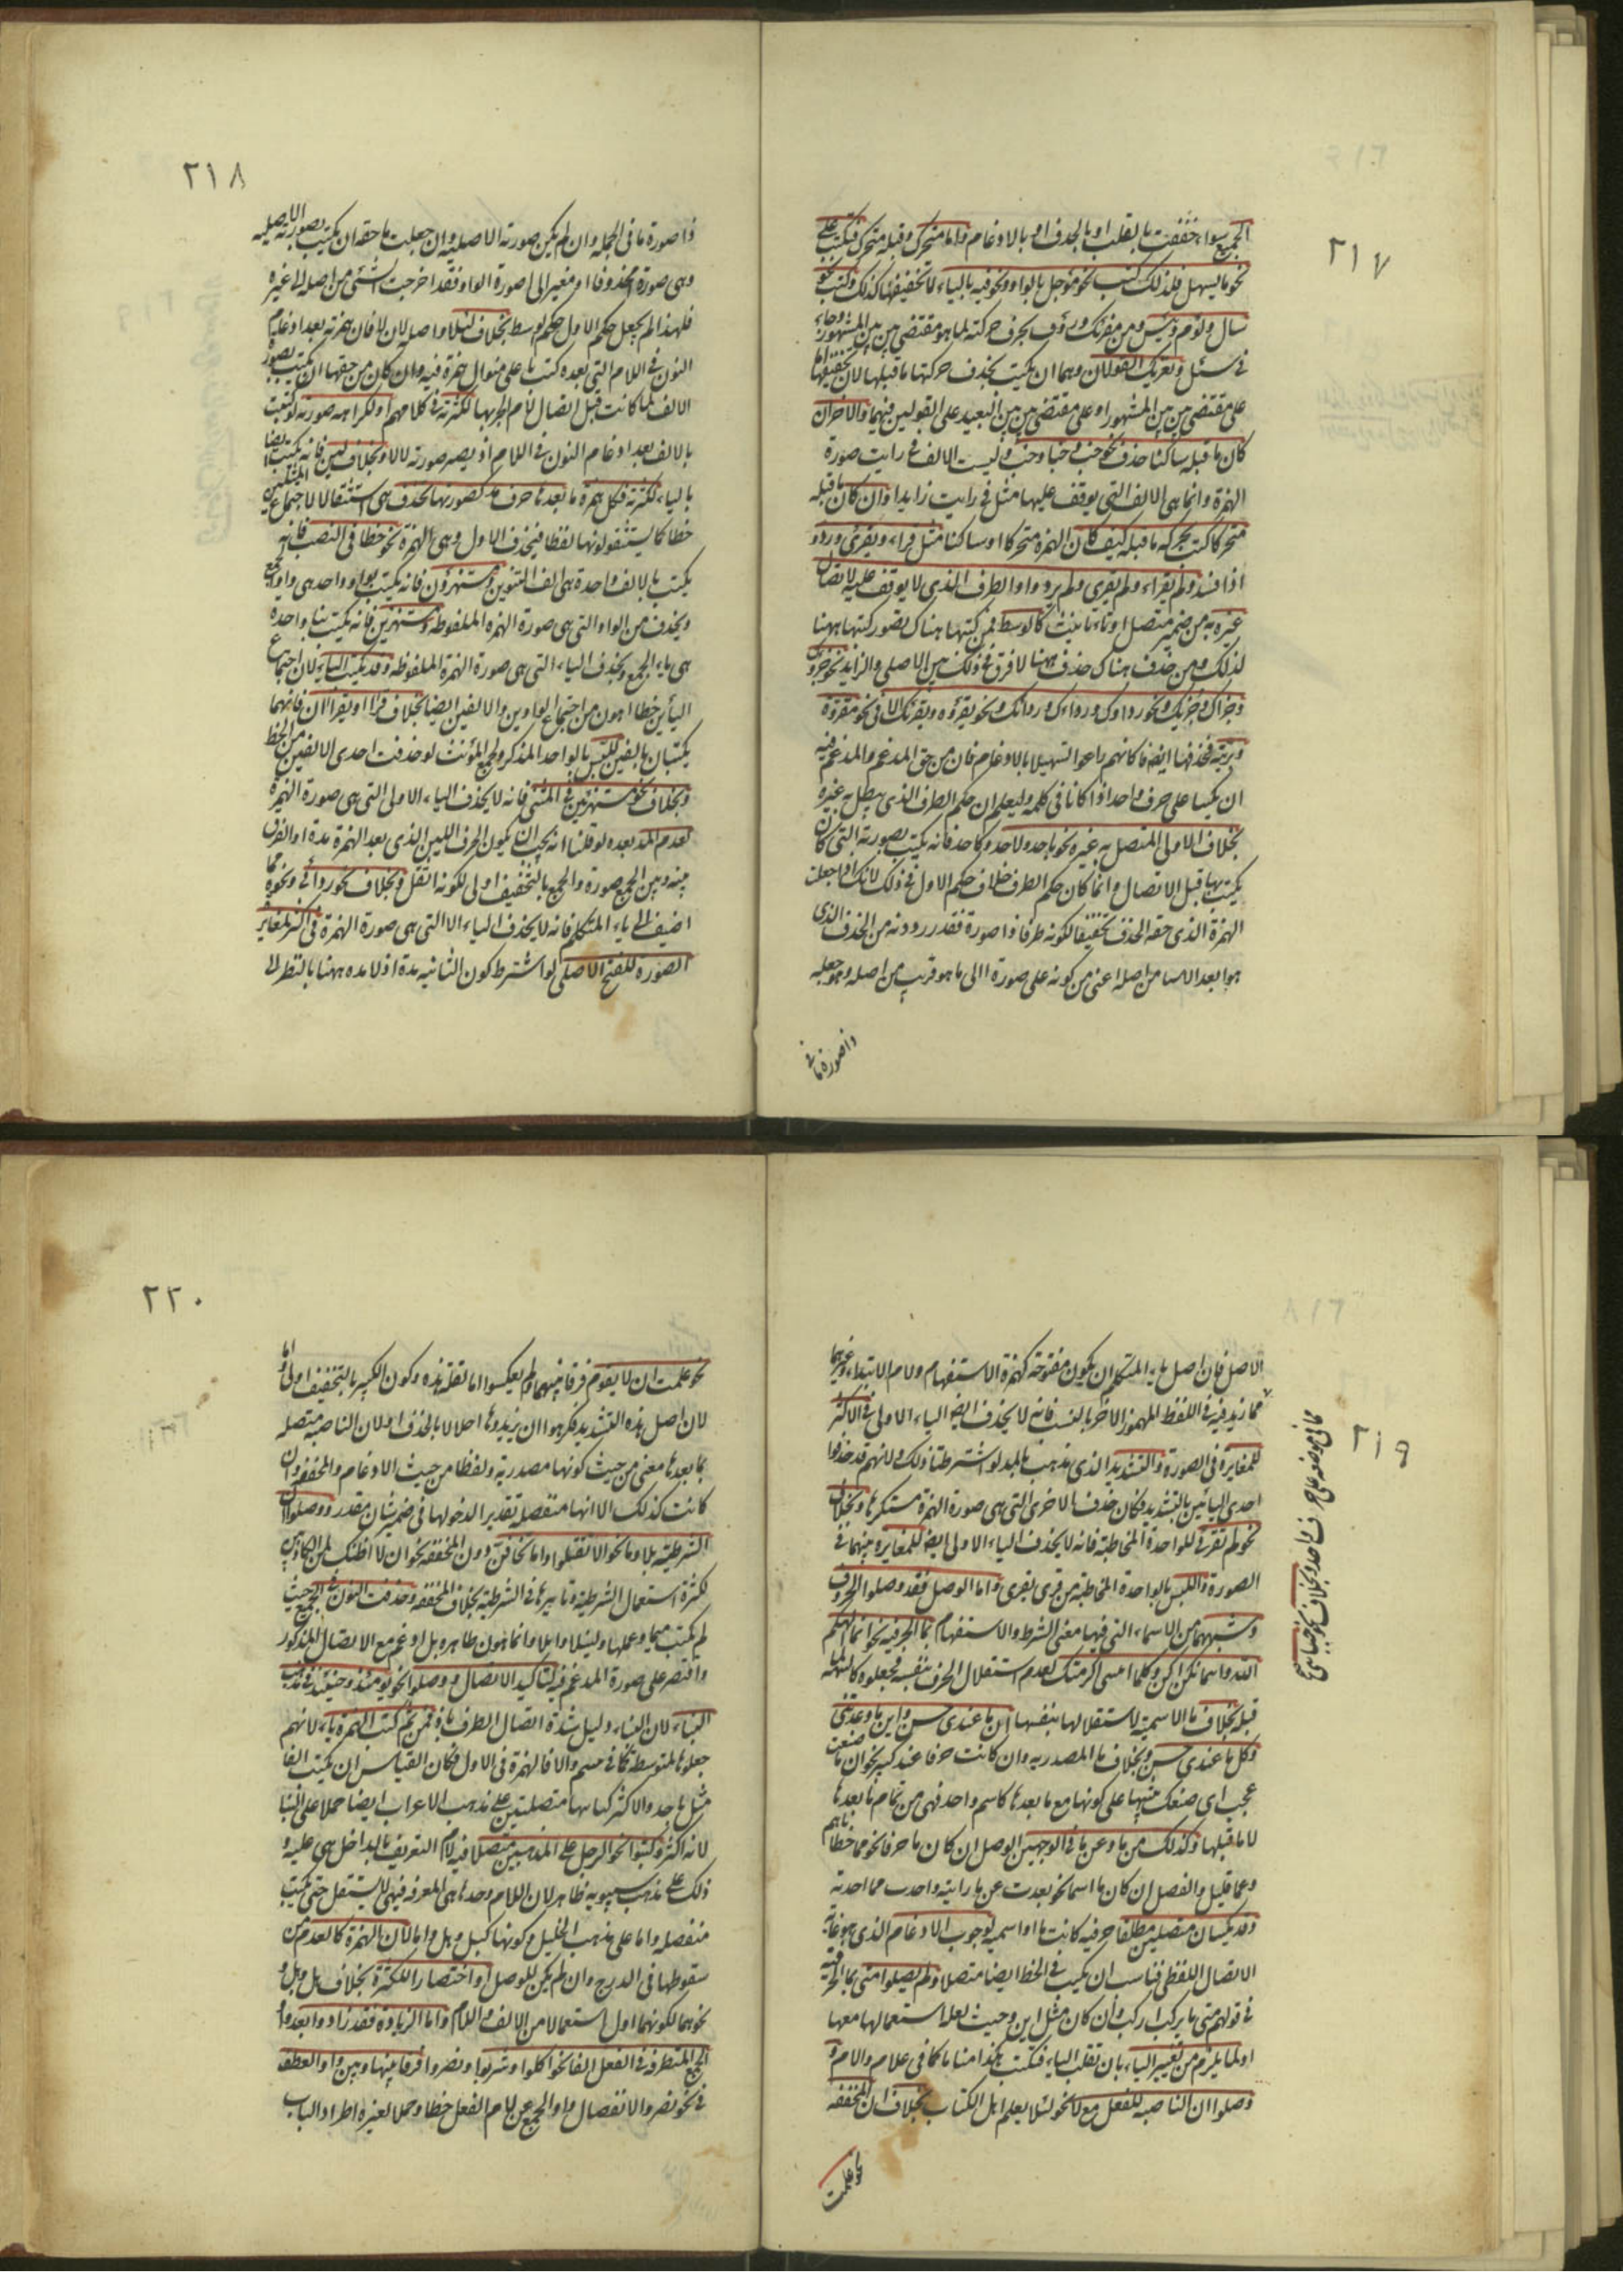 ٢١٧
الجميع سواء خففت بالقلب او بالحذف او بالادغام واما متحرك وقبله متحرك فتكتب على
نحو ما يسهل فلذلك كتب نحو موجل بالواو ونحو فيه بالياء لا تخفيفها كذلك وكتب نحو
سال ولؤم ويئس ومن مقرئك ورؤف بحرف حركته لما هو مقتضى بين بين المشهور وجاء
في سئل ويقرئك القولان وهما ان يكتب بحذف حركتها ما قبلها لان تخفيفها اما
على مقتضى بين بين المشهور او على مقتضى بين بين البعيد على القولين فيهما والآخر ان
كان ما قبله ساكنا حذف نحو خب وخبا وخب وليست الالف في رايت صورة
الهمزة وانما هي الالف التي يوقف عليها مثل في رايت زايدا وان كان ما قبله
متحركا كتب بحركة ما قبله كيف كان الهمزة متحركا او ساكنا مثل قراء ويقرئ وردؤ
اذا فسد ولم يقراء ولم يقرئ ولم يردو واو الطرف الذي لا يوقف عليه لاتصال
غيره به من ضمير متصل او تاء تانيث كالوسط فمن كتبها هناك بصور كتبها ههنا
لذلك ومن حذف هناك حذف ههنا لا فرق في ذلك بين الاصلي والزايد نحو جزؤك
وجزاك وجزئك ونحو رداؤك ورداءك وردائك ونحو يقرؤه ويقرئك الا في نحو مقروة
وبرية فحذفها ايضا فكانهم راعوا التسهيلا بالادغام فان من حق المدغم والمدغم فيه
ان يكتبا على حرف واحد اذا كانا في كلمة وليعلم ان حكم الطرف الذي يتصل به غيره
بخلاف الاول المتصل به غيره نحو باحد ولاحد وكاحد فانه يكتب بصورته التي كان
يكتب بها قبل الاتصال وانما كان حكم الطرف خلاف حكم الاول في ذلك لانك اذا جعلت
الهمزة الذي حقه الحذف تخفيفا لكونه طرفا ذا صورة فقد رددته من الحذف الذي
هو ابعد الاشيا من اصله اعني من كونه على صورة الى ما هو قريب من اصله وهو جعله
ذا صورة ما في
٢١٨
ذا صورة ما في الجملة وان لم يكن صورته الاصلية وان جعلت ما حقه ان يكتب بصورته الاصلية
وهي صورة محذوفا او مغيرا الى صورة الواو فقد اخرجت الشئ من اصله الى غيره
فلهذا لم يجعل حكم الاول حكم الوسط بخلاف لئلا واصله لان لا فان همزته بعد ادغام
النون في اللام التي بعده كتبت يا على منوال همزة فيه وان كان من حقها ان يكتب بصورة
الالف لما كانت قبل اتصال لام الجر بها لكثرته في كلامهم او لكراهة صورته لو كتبت
بالالف بعد ادغام النون في اللام اذ يصير صورته لالا وبخلاف لئن فانه يكتب ايضا
بالياء لكثرته فكل همزة ما بعدها حرف مد كصورتها يحذف هي استثقالا لاجتماع المثلين
خطا كما يستثقلونها لفظا فيحذف الاول وهي الهمزة نحو خطا في النصب فانه
يكتب بالالف واحدة هي الف التنوين ومستهزؤن فانه يكتب بواو واحد هي واو الجمع
ويحذف من الواو التي هي صورة الهمزة الملفوظة ومستهزئين فانه يكتب بياء واحدة
هي ياء الجمع ويحذف الياء التي هي صورة الهمزة الملفوظة وقد يكتب الياء لان اجتماع
اليائين خطا اهون من اجتماع الواوين والالفين ايضا بخلاف قراا ويقراان فانهما
يكتبان بالفين للبس بالواحد المذكر ولجمع المؤنث لو حذفت احدى الالفين من الخط
وبخلاف نحو مستهزئين في المثنى فانه لا يحذف الياء الاولى التي هي صورة الهمزة
لعدم المد بعده لو قلنا انه يجب ان يكون الحرف اللين الذي بعد الهمزة مدة او الفرق
بينه وبين الجمع صورة والجمع بالتخفيف اولى لكونه اثقل وبخلاف نحو ردائي ونحوه مما
اضيف الى ياء المتكلم فانه لا يحذف الياء الا التي هي صورة الهمزة في اكثر لمغايرة
الصورة للفتح الاصلي لو اشترط كون الثانية مدة اذ لا مدة ههنا بالنظر الى
٢١٩
الاصل فان اصل ياء المتكلم ان يكون مفتوحة كهمزة الاستفهام ولام الابتداء وغيرهما
مما زيد فيه في اللفظ المهموز الآخر بالنسب فانه لا يحذف ايضا الياء الاولى في الاكثر
للمغايرة في الصورة والتشديد الذي يذهب بالمد لو اشترطنا ذلك ولانهم قد حذفوا
احدى اليائين بالتشديد فكان حذف الاخرى التي هي صورة الهمزة مستكرها وبخلاف
نحو لم تقرئي للواحدة المخاطبة فانه لا يحذف الياء الاولى ايضا للمغايرة بينهما في
الصورة واللبس بالواحدة المخاطبة من قرى يقرى واما الوصل فقد وصلوا الحروف
وشبهها من الاسماء التي فيها معنى الشرط والاستفهام بما الحرفية نحو انما الهكم
الله واينما تكن اكن وكلما اتيتني اكرمتك لعدم استقلال الحرف بنفسه فجعلوه كالتتمة لما
قبله بخلاف ما الاسمية لاستقلالها بنفسها ان ما عندي حسن واين ما وعدتني
وكل ما عندي حسن وبخلاف ما المصدرية وان كانت حرفا عند كثير نحو ان ما صنعت
عجب اي صنعك تنبيها على كونها مع ما بعدها كاسم واحد فهي من تمام ما بعدها
لا ما قبلها وكذلك من ما وعن ما في الوجهين الوصل ان كان ما حرفا نحو مما خطاياهم
وعما قليل والفصل ان كان ما اسما نحو بعدت عن ما رايته واخذت مما اخذته
وقد يكتبان متصلين مطلقا حرفية كانت ما او اسمية لوجوب الادغام الذي هو غاية
الاتصال اللفظي فناسب ان يكتب في الخط ايضا متصلا ولم يصلوا متى بما الحرفية
في قولهم متى ما تركب اركب وان كان مثل اين وحيث لعلة استعمالها معها
او لما يلزم من تغيير الياء بان تقلب الياء فتكتب هكذا متاما كما في علام والام و
وصلوا ان الناصبة للفعل مع لا نحو لئلا يعلم اهل الكتاب بخلاف ان المخففة
نحو علمت
٢٢٠
نحو علمت ان لا يقوم فرقا بينهما ولم يعكسوا اما لقلة هذه وكون الكثير بالتخفيف اولى واما
لان اصل هذه التشديد فكرهوا ان يزيدوها اخلالا بالحذف او لان الناصبة متصلة
بما بعدها معنى من حيث كونها مصدرية ولفظا من حيث الادغام والمخففة وان
كانت كذلك الا انها منفصلة تقديرا لدخولها في ضمير شان مقدر ووصلوا ان
الشرطية بلا وما نحو الا تفعلوا واما تخافن دون المخففة نحو ان لا اظنك لمن الكاذبين
لكثرة استعمال الشرطية وتاثيرها في الشرطية بخلاف المخففة وحذفت النون في الجميع حيث
لم يكتب مما وعملها ولئلا والا واما بنون ظاهرة بل ادغم مع الاتصال المذكور
واقتصر على صورة المدغم فيه لتاكيد الاتصال ووصلوا نحو يومئذ وحينئذ في مذهب
البناء لان البناء دليل شدة اتصال الظرف باذ فمن ثم كتبت الهمزة ياء لانهم
جعلوها كالمتوسطة كما في سئم والا فالهمزة في الاول فكان القياس ان يكتب الفا
مثل باحد والاكثر كتباها متصلتين على مذهب الاعراب ايضا حملا على البنا
لانه اكثر وكتبوا نحو الرجل على المذهبين متصلا فيه لام التعريف بالداخل هي عليه و
ذلك على مذهب سيبويه ظاهر لان اللام وحدها هي المعرفة فهي لا يستقل حتى تكتب
منفصلة واما على مذهب الخليل وكونها كبل وهل واما لان الهمزة كالعدم من
سقوطها في الدرج وان لم يكن للوصل او اختصارا للكثرة بخلاف هل وبل و
نحوهما لكونهما اقل استعمالا من الالف واللام واما الزيادة فقد زادوا بعد واو
الجمع المتطرفة في الفعل الفا نحو اكلوا وشربوا ونصروا فرقا بينها وبين واو العطف
في نحو نصر والانفصال واو الجمع عن لام الفعل خطا وحملا لغيره اطرادا للباب